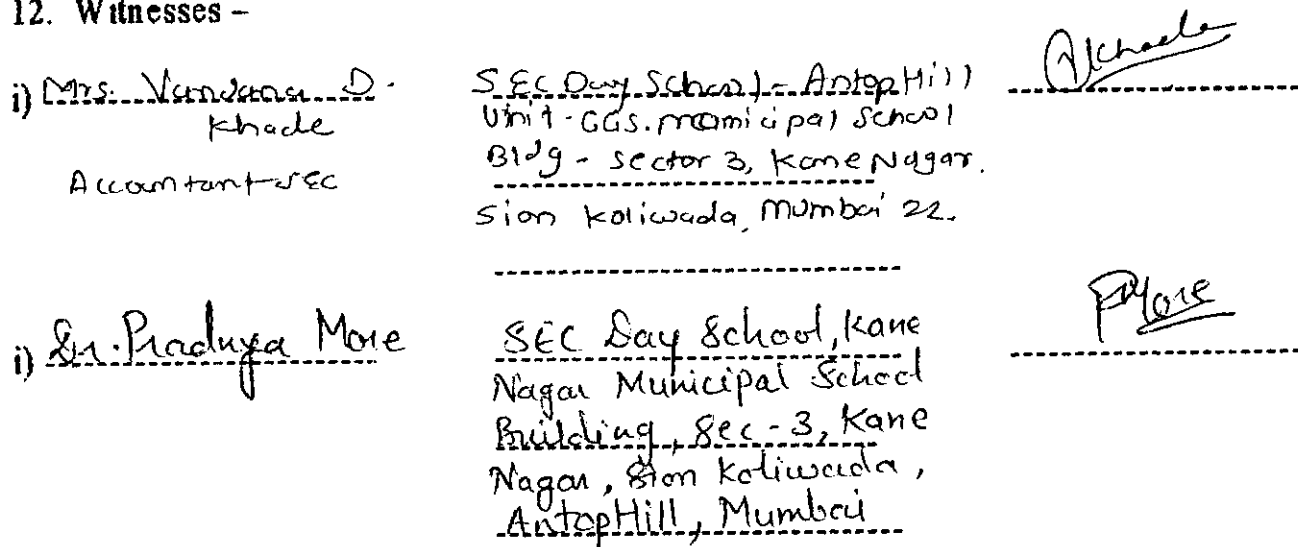 12. Witnesses –
i) Mrs. Vandana D. Khade
Accountant-SEC
SEC Day School - Antop Hill
Unit - GGS. municipal School
Bldg - sector 3, Kane Nagar.
Sion Koliwada, Mumbai 22.
Khade
i) Dr. Pradnya More
SEC Day School, Kane
Nagar Municipal School
Building, Sec-3, Kane
Nagar, Sion Koliwada,
Antop Hill, Mumbai
PMore